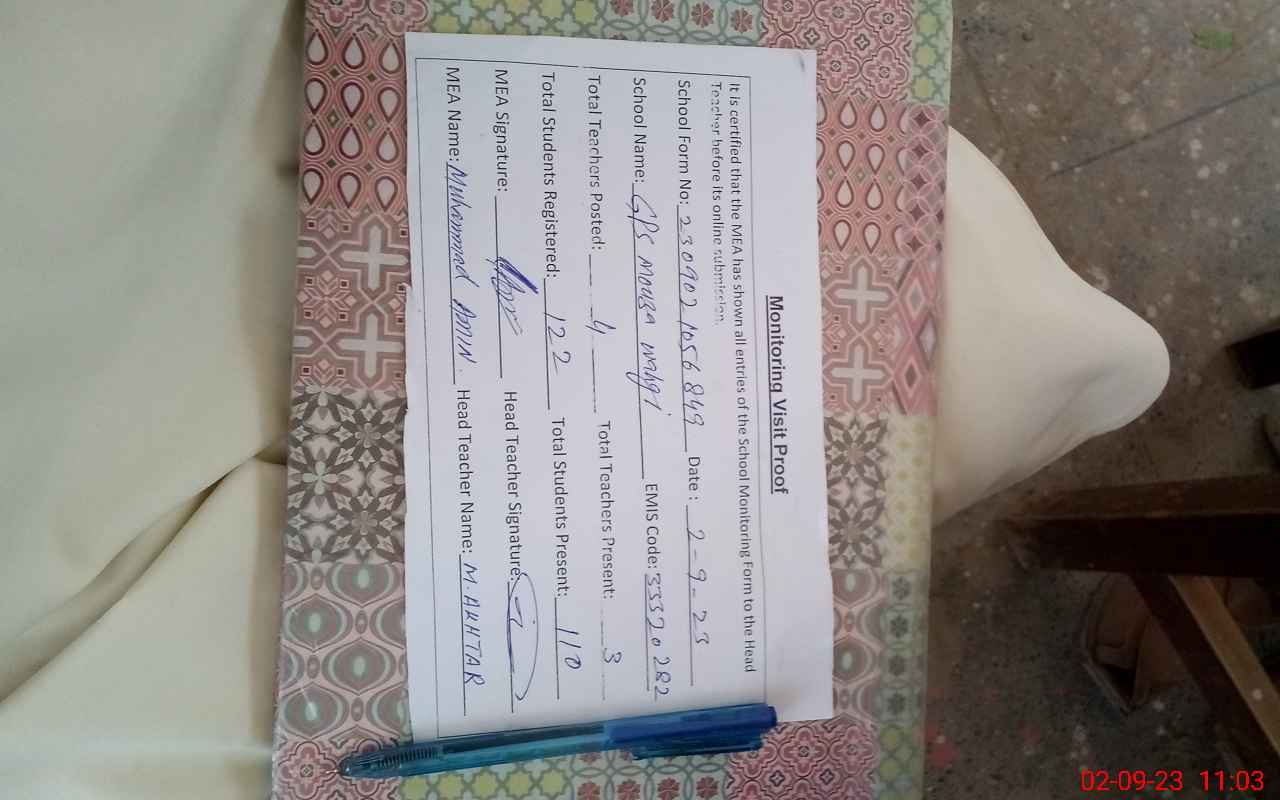 Monitoring Visit Proof
It is certified that the MEA has shown all entries of the School Monitoring Form to the Head
Teacher before its online submission.
School Form No: 2309021056849 Date : 2-9-23
School Name: GPS Mouza wahgi EMIS Code: 33320282
Total Teachers Posted: 4 Total Teachers Present: 3
Total Students Registered: 122 Total Students Present: 110
MEA Signature: Head Teacher Signature:
MEA Name: Muhammad Amin. Head Teacher Name: M. AKHTAR
02-09-23 11:03